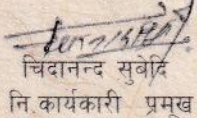 चिदानन्द सुबेदि
नि कार्यकारी प्रमुख